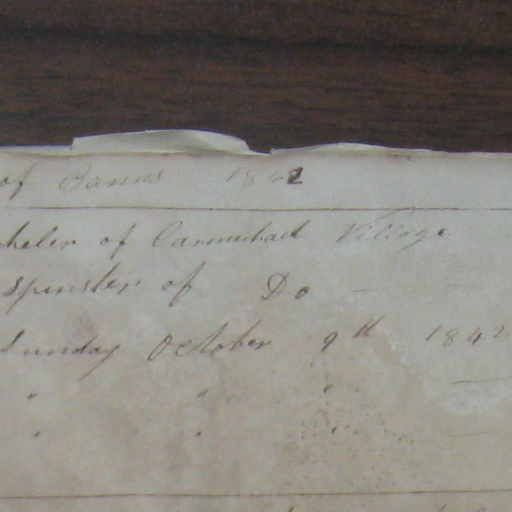 of Banns 1842
chelor of Carmichael Village
Spinster of Do
Sunday October 9th 1842
" " "
" " "